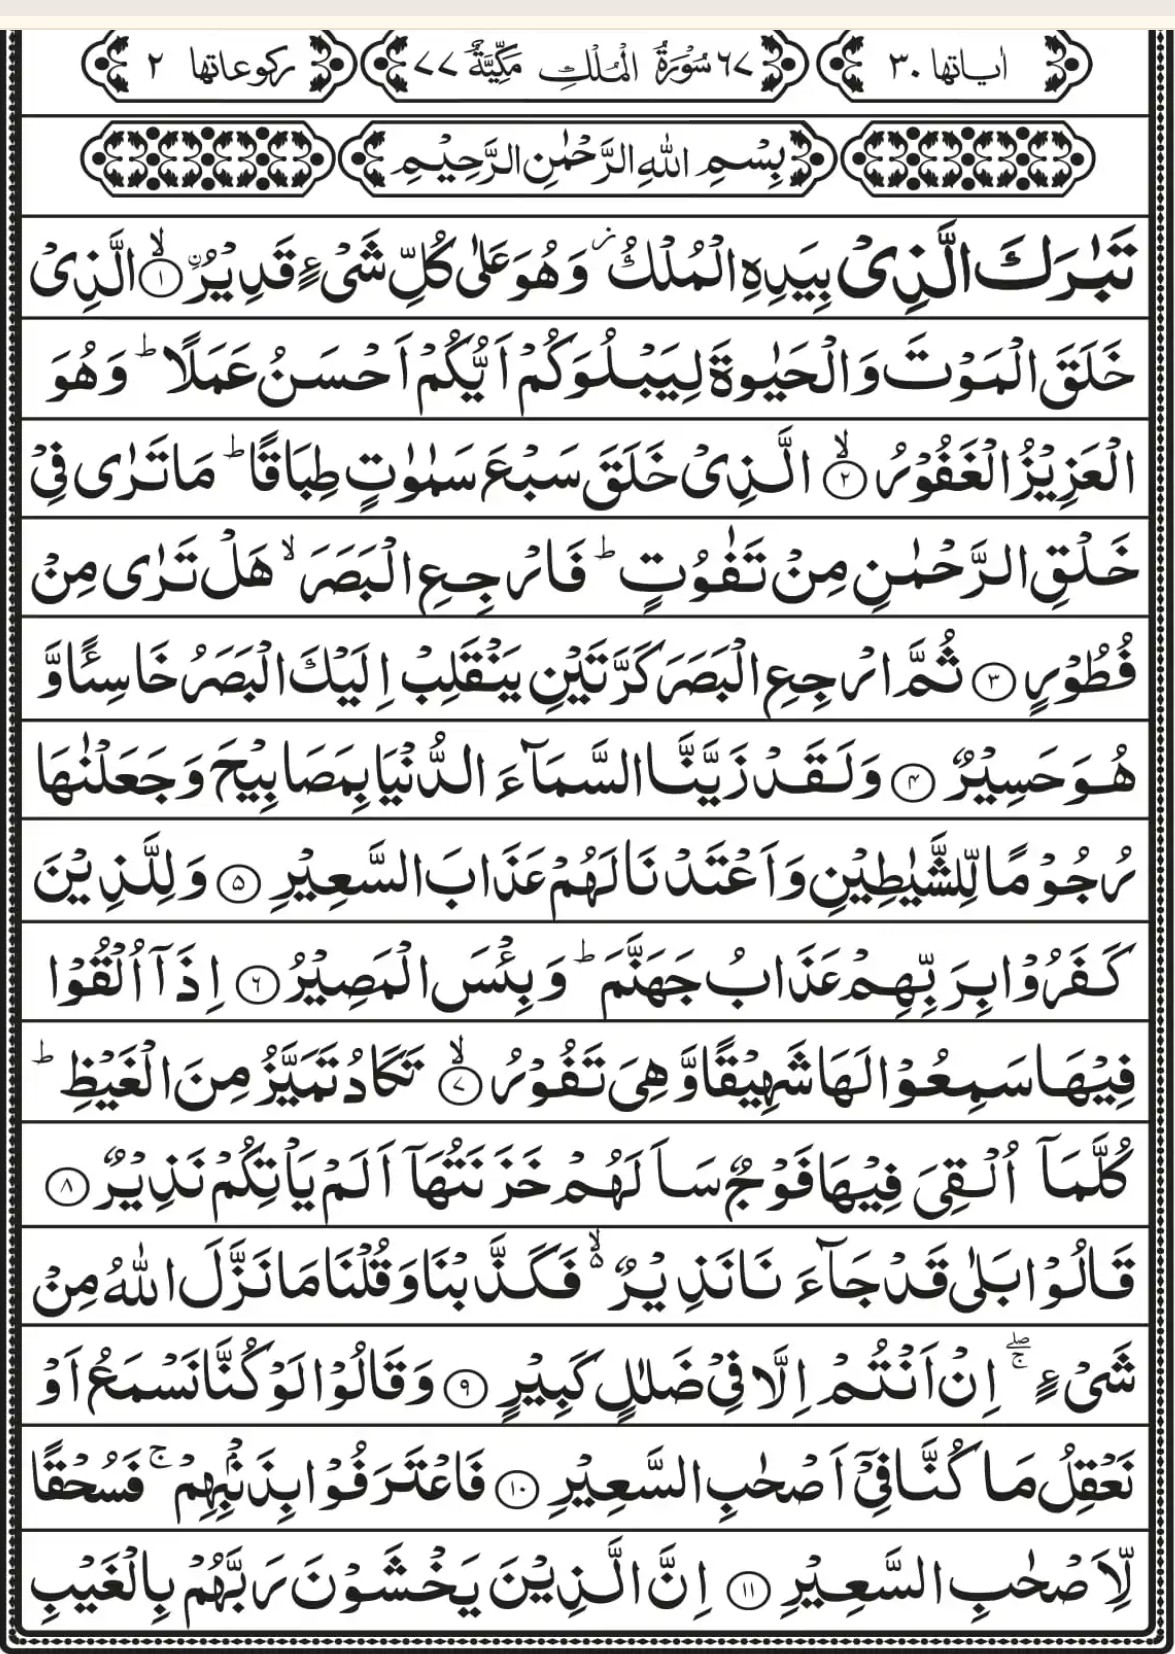 اٰیاتها ۳۰ ۶۷ سُوْرَةُ الْمُلْكِ مَكِّيَّةٌ ۷۷ ركوعاتها ۲
بِسْمِ اللهِ الرَّحْمٰنِ الرَّحِيْمِ
تَبٰرَكَ الَّذِىْ بِيَدِهِ الْمُلْكُ ز وَهُوَ عَلٰى كُلِّ شَىْءٍ قَدِيْرُ ۨ ۙ‏﴿۱﴾ الَّذِىْ
خَلَقَ الْمَوْتَ وَالْحَيٰوةَ لِيَبْلُوَكُمْ اَيُّكُمْ اَحْسَنُ عَمَلًا ؕ وَهُوَ
الْعَزِيْزُ الْغَفُوْرُ ۙ‏﴿۲﴾ الَّذِىْ خَلَقَ سَبْعَ سَمٰوٰتٍ طِبَاقًا ؕ مَا تَرٰى فِىْ
خَلْقِ الرَّحْمٰنِ مِنْ تَفٰوُتٍ ؕ فَارْجِعِ الْبَصَرَ ۙ هَلْ تَرٰى مِنْ
فُطُوْرٍ ﴿۳﴾ ثُمَّ ارْجِعِ الْبَصَرَ كَرَّتَيْنِ يَنْقَلِبْ اِلَيْكَ الْبَصَرُ خَاسِئًا وَّ
هُوَ حَسِيْرٌ ﴿۴﴾ وَلَقَدْ زَيَّنَّا السَّمَآءَ الدُّنْيَا بِمَصَابِيْحَ وَجَعَلْنٰهَا
رُجُوْمًا لِّلشَّيٰطِيْنِ وَاَعْتَدْنَا لَهُمْ عَذَابَ السَّعِيْرِ ﴿۵﴾ وَلِلَّذِيْنَ
كَفَرُوْا بِرَبِّهِمْ عَذَابُ جَهَنَّمَ ؕ وَبِئْسَ الْمَصِيْرُ ﴿۶﴾ اِذَآ اُلْقُوْا
فِيْهَا سَمِعُوْا لَهَا شَهِيْقًا وَّهِىَ تَفُوْرُ ۙ‏﴿۷﴾ تَكَادُ تَمَيَّزُ مِنَ الْغَيْظِ ؕ
كُلَّمَآ اُلْقِىَ فِيْهَا فَوْجٌ سَاَلَهُمْ خَزَنَتُهَآ اَلَمْ يَاْتِكُمْ نَذِيْرٌ ﴿۸﴾
قَالُوْا بَلٰى قَدْ جَآءَنَا نَذِيْرٌ ۙ۬ فَكَذَّبْنَا وَقُلْنَا مَا نَزَّلَ اللهُ مِنْ
شَىْءٍ ۖۚ اِنْ اَنْتُمْ اِلَّا فِىْ ضَلٰلٍ كَبِيْرٍ ﴿۹﴾ وَقَالُوْا لَوْ كُنَّا نَسْمَعُ اَوْ
نَعْقِلُ مَا كُنَّا فِىْۤ اَصْحٰبِ السَّعِيْرِ ﴿۱۰﴾ فَاعْتَرَفُوْا بِذَنْۢبِهِمْ ۚ فَسُحْقًا
لِّاَصْحٰبِ السَّعِيْرِ ﴿۱۱﴾ اِنَّ الَّذِيْنَ يَخْشَوْنَ رَبَّهُمْ بِالْغَيْبِ